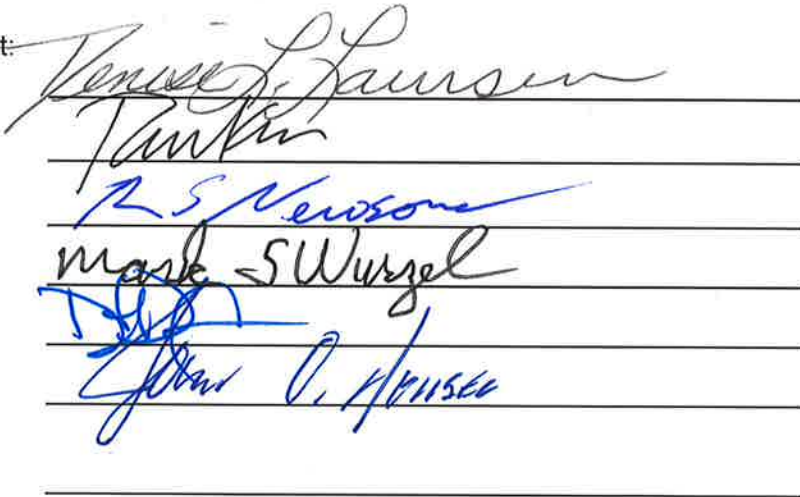 t:
Denise L. Laursen
R S Newsome
Mark S Wurzel
John O. Hansen